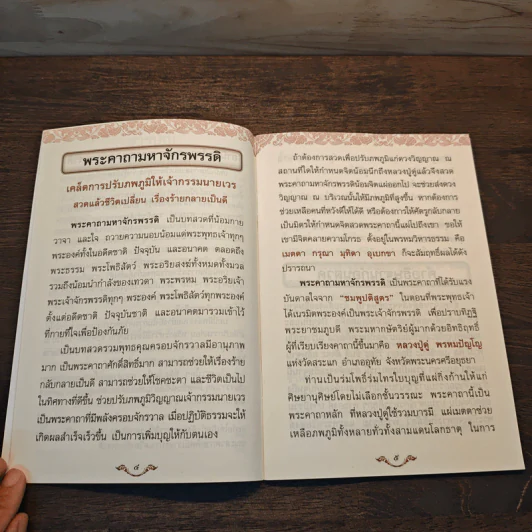 พระคาถามหาจักรพรรดิ
เคล็ดการปรับภพภูมิให้เจ้ากรรมนายเวร
สวดแล้วชีวิตเปลี่ยน เรื่องร้ายกลายเป็นดี
พระคาถามหาจักรพรรดิ เป็นบทสวดที่น้อมกาย
วาจา และใจ ถวายความนอบน้อมแด่พระพุทธเจ้าทุกๆ
พระองค์ทั้งในอดีตชาติ ปัจจุบัน และอนาคต ตลอดถึง
พระธรรม พระโพธิสัตว์ พระอริยสงฆ์ทั้งหมดทั้งมวล
รวมถึงน้อมนำกำลังของเทวดา พระพรหม พระอริยเจ้า
พระเจ้าจักรพรรดิทุกๆ พระองค์ พระโพธิสัตว์ทุกพระองค์
ตั้งแต่อดีตชาติ ปัจจุบันชาติ และอนาคตมารวมเข้าไว้
ที่กายที่ใจเพื่อป้องกันภัย
เป็นบทสวดรวมพุทธคุณครอบจักรวาลมีอานุภาพ
มาก เป็นพระคาถาศักดิ์สิทธิ์มาก สามารถช่วยให้เรื่องร้าย
กลับกลายเป็นดี สามารถช่วยให้โชคชะตา และชีวิตเป็นไป
ในทิศทางที่ดีขึ้น ช่วยปรับภพภูมิวิญญาณเจ้ากรรมนายเวร
เป็นพระคาถาที่มีพลังครอบจักรวาล เมื่อปฏิบัติธรรมจะให้
เกิดผลสำเร็จเร็วขึ้น เป็นการเพิ่มบุญให้กับตนเอง
๔
ถ้าต้องการสวดเพื่อปรับภพภูมิแก่ดวงวิญญาณ ณ
สถานที่ใดให้กำหนดจิตน้อมนึกถึงหลวงปู่ดู่แล้วจึงสวด
พระคาถามหาจักรพรรดิน้อมจิตแผ่ออกไป จะช่วยส่งดวง
วิญญาณ ณ บริเวณนั้นให้มีภพภูมิที่สูงขึ้น หากต้องการ
ช่วยเหลือคนที่หวังดีให้ได้ดี หรือต้องการให้ศัตรูกลับกลาย
เป็นมิตรให้กำหนดจิตสวดพระคาถานี้แผ่ไปถึงเขา ขอให้
เขามีจิตคลายความโกรธ ตั้งอยู่ในพรหมวิหารธรรม คือ
เมตตา กรุณา มุทิตา อุเบกขา ก็จะสัมฤทธิ์ผลได้ดัง
ปรารถนา
พระคาถามหาจักรพรรดิ เป็นพระคาถาที่ได้รับแรง
บันดาลใจจาก “ชมพูปติสูตร” ในตอนที่พระพุทธเจ้า
ได้เนรมิตพระองค์เป็นพระเจ้าจักรพรรดิ เพื่อปราบทิฏฐิ
พระยาชมภูบดี พระมหากษัตริย์ผู้มากด้วยอิทธิฤทธิ์
ผู้ที่เรียบเรียงคาถานี้ขึ้นมาคือ หลวงปู่ดู่ พรหมปัญโญ
แห่งวัดสะแก อำเภออุทัย จังหวัดพระนครศรีอยุธยา
ท่านเป็นร่มโพธิ์ร่มไทรใบบุญที่แผ่กิ่งก้านให้แก่
ศิษยานุศิษย์โดยไม่เลือกชั้นวรรณะ พระคาถานี้เป็น
พระคาถาหลัก ที่หลวงปู่ดู่ใช้รวมบารมี แผ่เมตตาช่วย
เหลือภพภูมิทั้งหลายทั่วทั้งสามแดนโลกธาตุ ในการ
๕